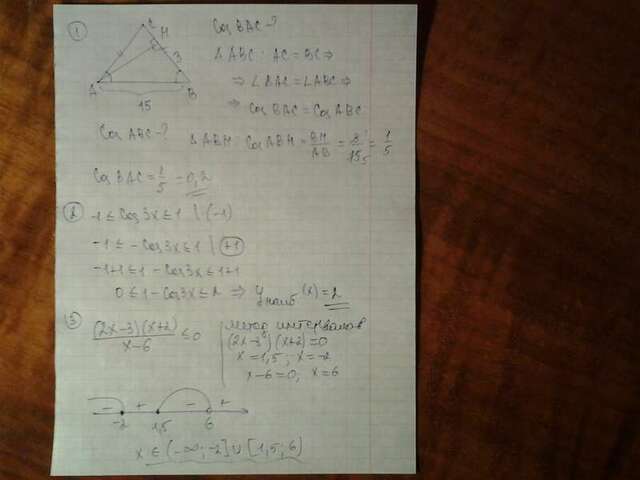 1
Cos BAC - ?
C
H
3
A
B
15
△ABC: AC = BC ⇒
⇒ ∠BAC = ∠ABC ⇒
⇒ Cos BAC = Cos ABC
Cos ABC - ?
△ABH: Cos ABH = BH/AB = 3/15 = 1/5
Cos BAC = 1/5 = 0,2
2
-1 ≤ Cos 3x ≤ 1 | (-1)
-1 ≤ - Cos 3x ≤ 1 | +1
-1+1 ≤ 1 - Cos 3x ≤ 1+1
0 ≤ 1 - Cos 3x ≤ 2 ⇒ y наиб (x) = 2
3
(2x-3)(x+2)/(x-6) ≤ 0
метод интервалов
(2x-3)(x+2)=0
x = 1,5; x = -2
x-6=0, x=6
- + - +
-2 1,5 6
x ∈ (-∞; -2] ∪ [1,5; 6)